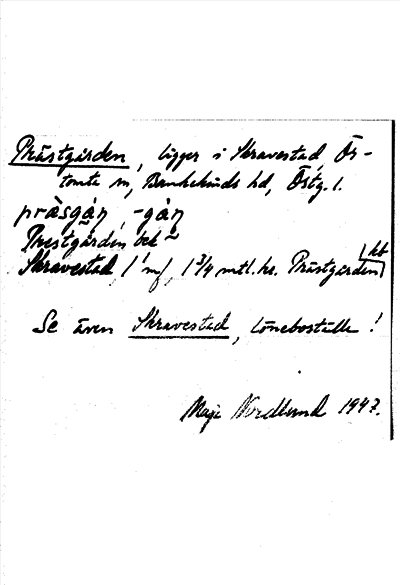 Prästgården, ligger i Skravestad, Ör-
tomta sn, Bankekinds hd, Östg. l.
pràsgáņ, -gáņ
Prestgården bek
Skravestad, 1 mf, 1 3/4 mtl. kr. Prästgården
Se även Skravestad, löneboställe!
Maja Nordlund 1947.